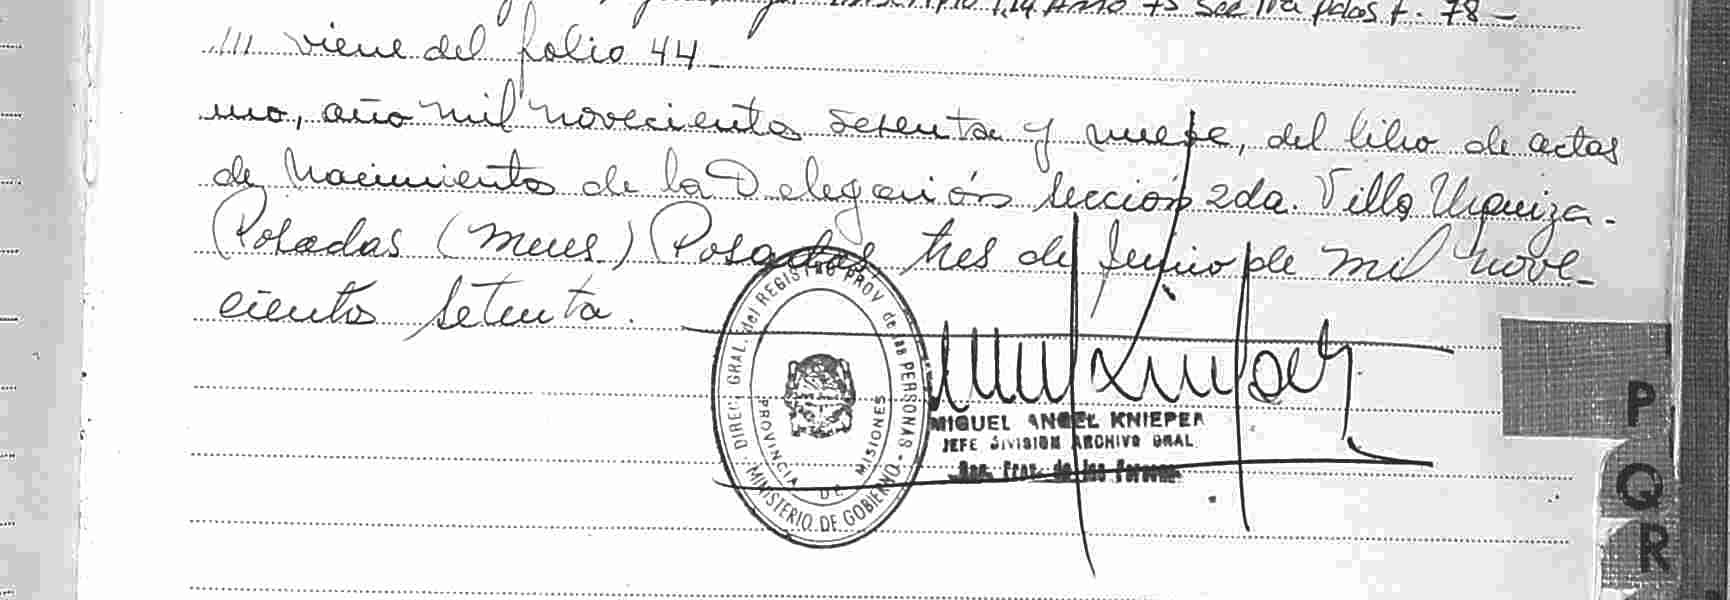 Pdas f. 78 -
/// viene del folio 44 -
uno, año mil novecientos sesenta y nueve, del libro de actas
de Nacimientos de la Delegación sección 2da. Villa Urquiza -
Posadas (Mnes) Posadas tres de junio de mil nove-
cientos setenta.
DIREC. GRAL. del REGISTRO PROV de las PERSONAS - MINISTERIO DE GOBIERNO -
PROVINCIA DE MISIONES
MIGUEL ANGEL KNIEPER
JEFE DIVISION ARCHIVO GRAL
P
Q
R